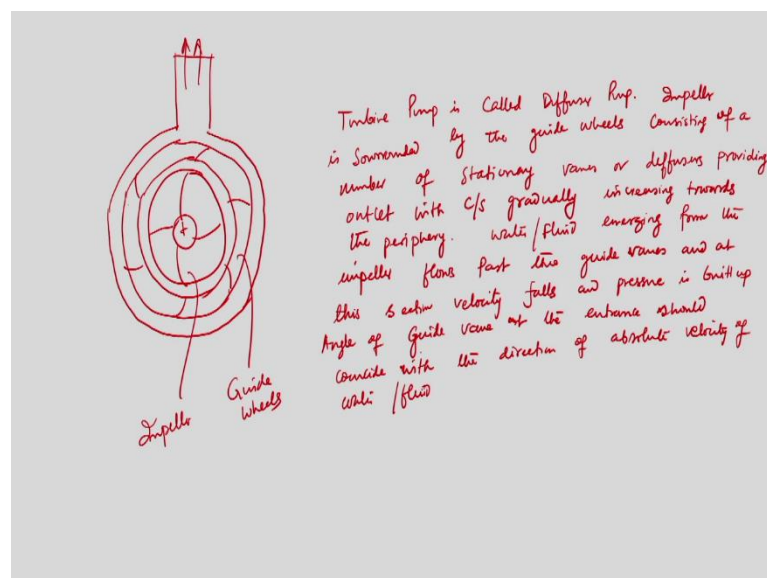 Turbine Pump is Called Diffuser Pump. Impeller
is Sourrended by the guide wheels Consisting of a
number of Stationary vanes or diffusers providing
outlet with C/s gradually increasing towards
the periphery. water/fluid emerging form the
impeller flows Past the guide vanes and at
this section velocity falls and pressure is built up
Angle of Guide vane at the entrance should
coincide with the direction of absolute velocity of
water /fluid
Impeller
Guide
wheels